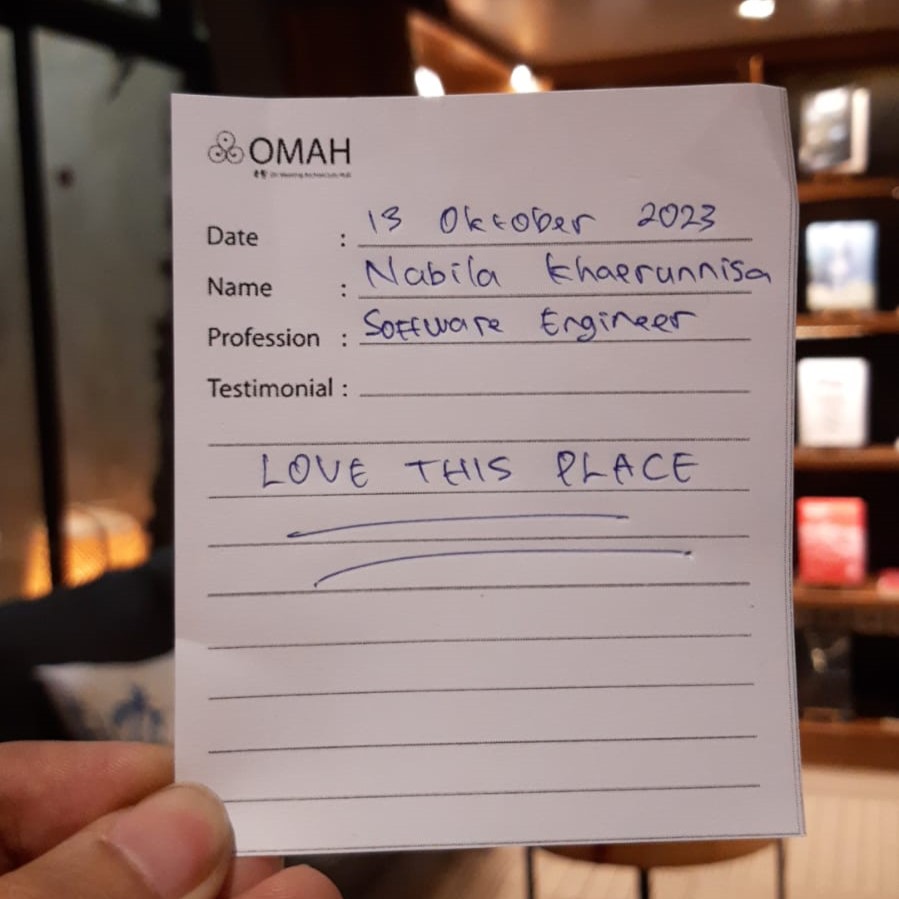 OMAH
Date : 13 Oktober 2023
Name : Nabila Khaerunnisa
Profession : Software Engineer
Testimonial :
LOVE THIS PLACE